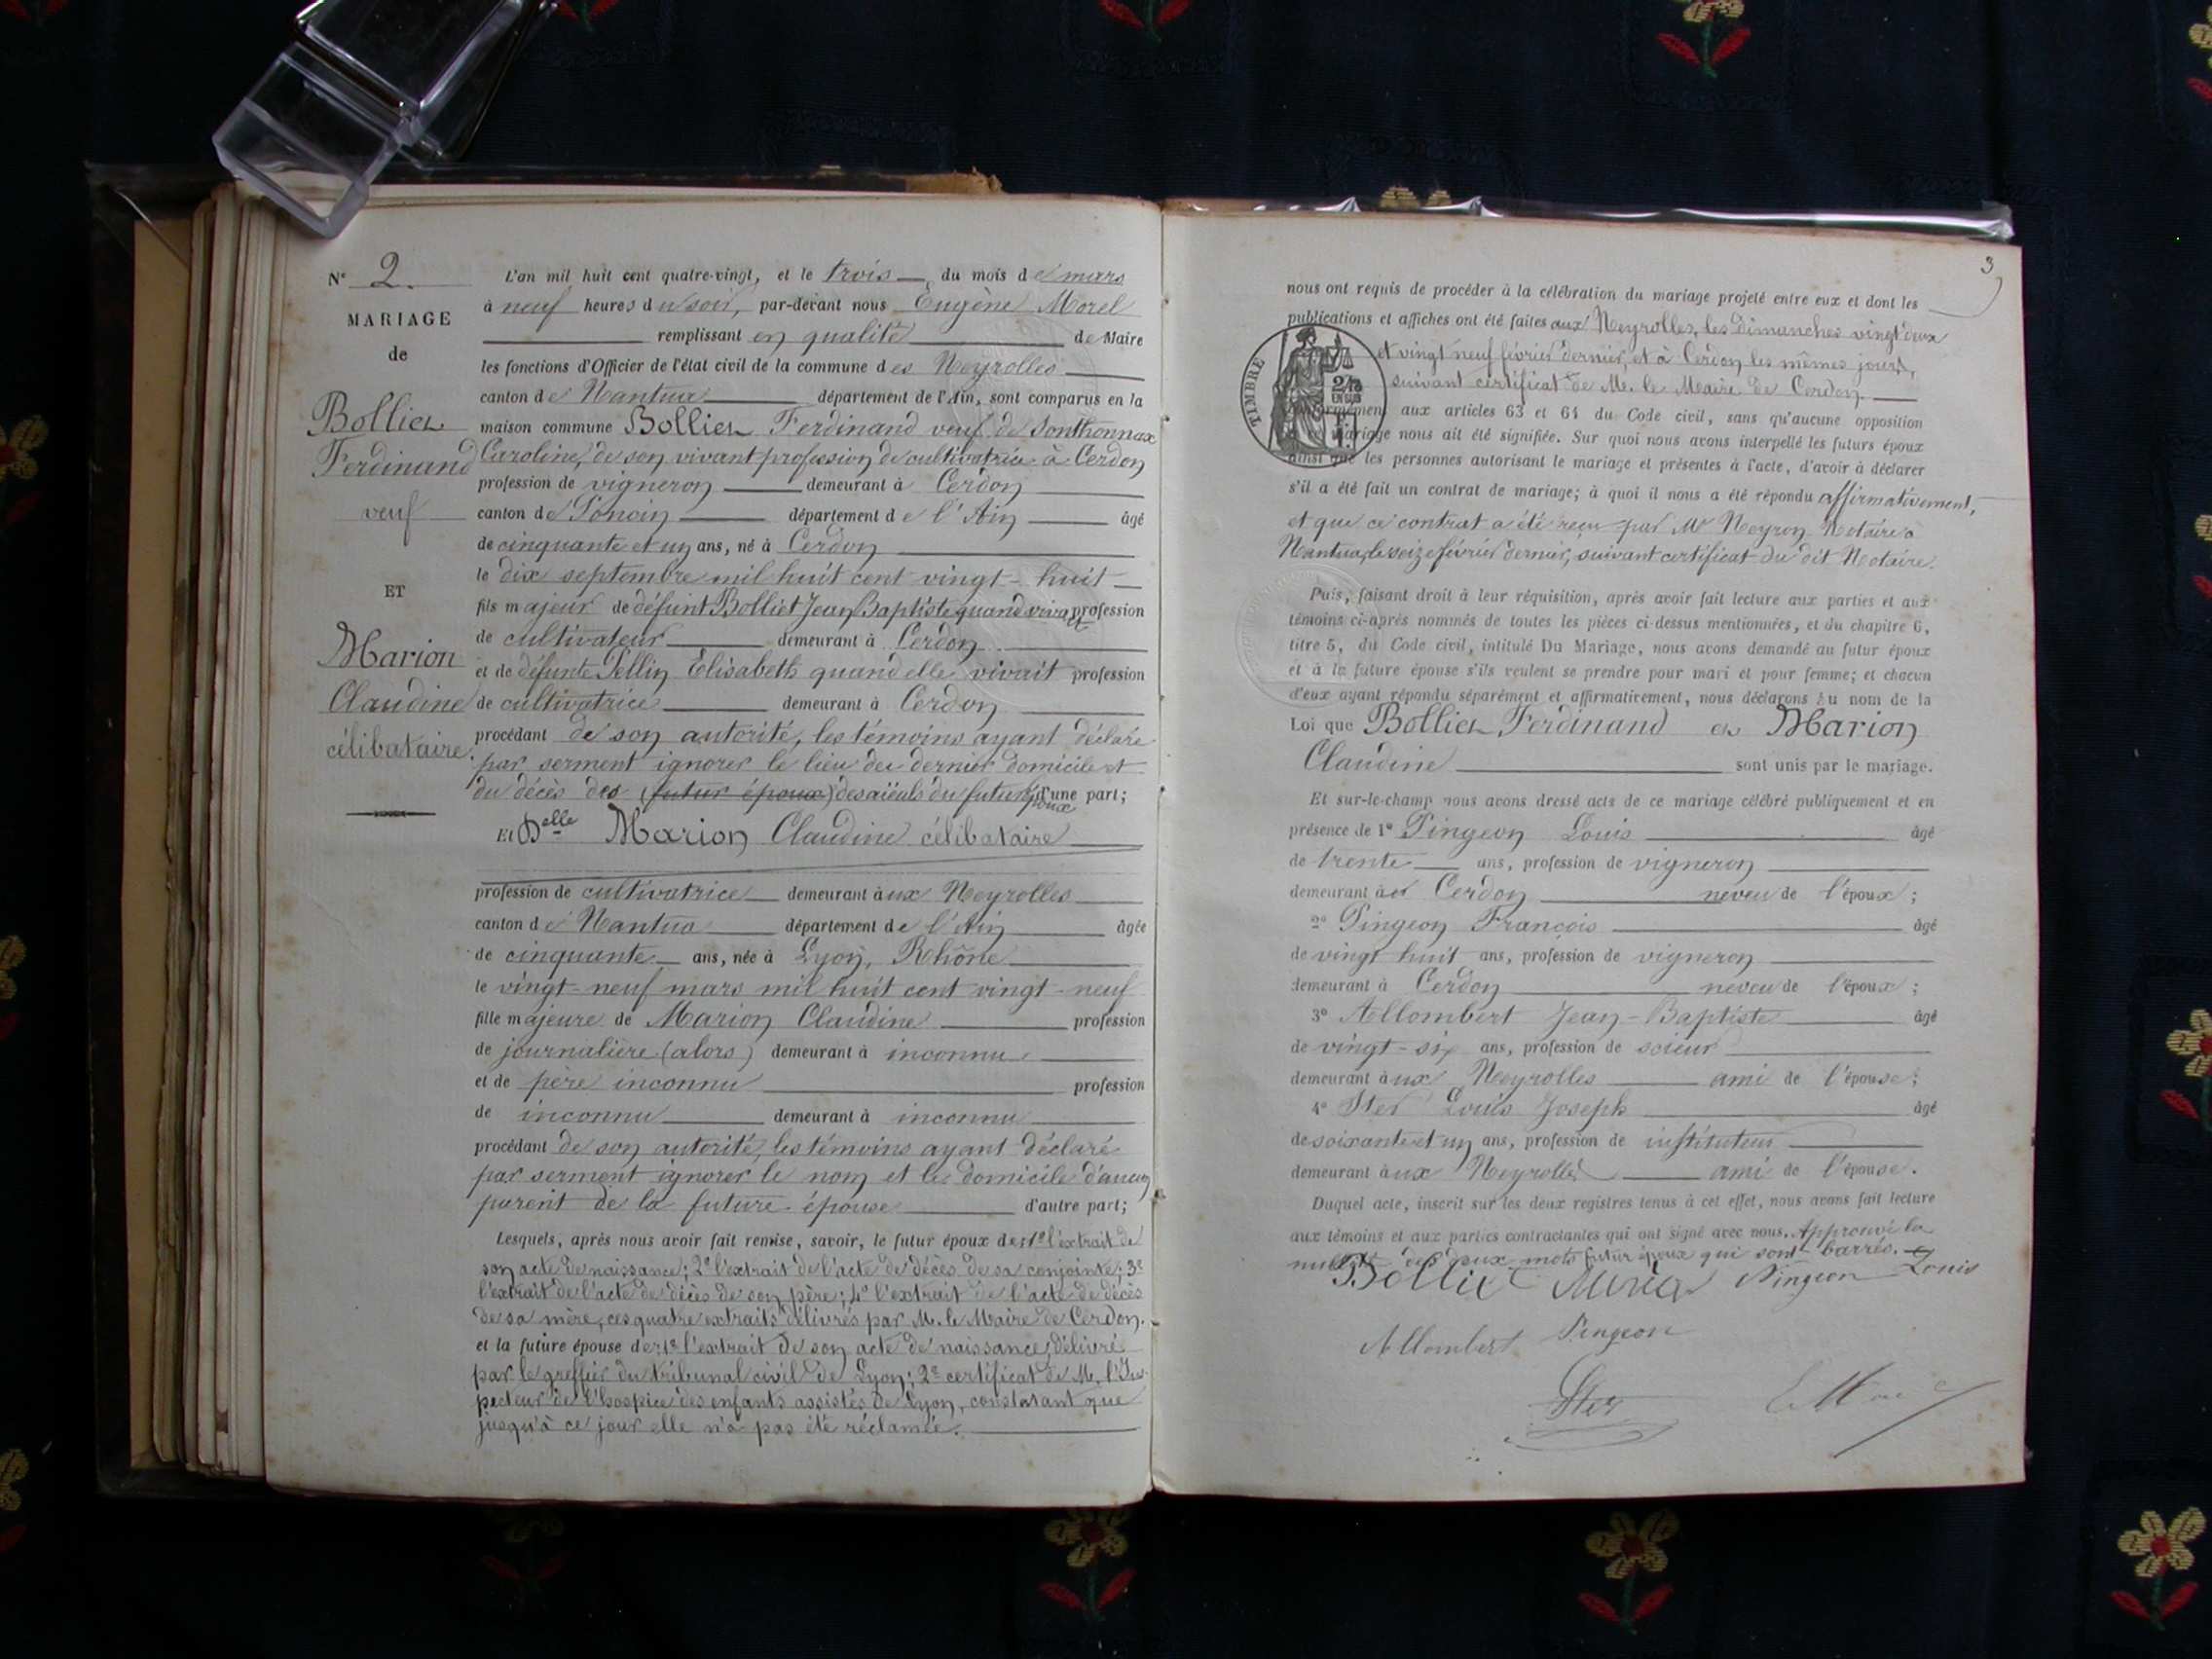 N° 2.
MARIAGE
de
Bolliet
Ferdinand
veuf
ET
Marion
Claudine
célibataire.
L'an mil huit cent quatre-vingt, et le trois du mois de mars
à neuf heures du soir, par-devant nous Eugène Morel
remplissant en qualité de Maire
les fonctions d'Officier de l'état civil de la commune des Neyrolles
canton de Nantua département de l'Ain, sont comparus en la
maison commune Bolliet Ferdinand veuf de Sonthonnax
Caroline, de son vivant profession de cultivatrice à Cerdon
profession de vigneron demeurant à Cerdon
canton de Poncin département de l'Ain âgé
de cinquante et un ans, né à Cerdon
le dix septembre mil huit cent vingt-huit
fils majeur de défunt Bolliet Jean Baptiste quand vivait profession
de cultivateur demeurant à Cerdon
et de défunte Pellin Elisabeth quand elle vivait profession
de cultivatrice demeurant à Cerdon
procédant de son autorité, les témoins ayant déclaré
par serment ignorer le lieu du dernier domicile et
du décès des (futur époux) des aïeuls du futur époux d'une part;
Et Delle Marion Claudine célibataire
profession de cultivatrice demeurant aux Neyrolles
canton de Nantua département de l'Ain âgée
de cinquante ans, née à Lyon, Rhône
le vingt-neuf mars mil huit cent vingt-neuf
fille majeure de Marion Claudine profession
de journalière (alors) demeurant à inconnu
et de père inconnu profession
de inconnu demeurant à inconnu
procédant de son autorité, les témoins ayant déclaré
par serment ignorer le nom et le domicile d'aucun
parent de la future épouse d'autre part;
Lesquels, après nous avoir fait remise, savoir, le futur époux de: 1° l'extrait de
son acte de naissance; 2° l'extrait de l'acte de décès de sa conjointe; 3°
l'extrait de l'acte de décès de son père; 4° l'extrait de l'acte de décès
de sa mère, ces quatre extraits délivrés par M. le Maire de Cerdon.
et la future épouse de: 1° l'extrait de son acte de naissance, délivré
par le greffier du tribunal civil de Lyon; 2° certificat de M. l'Ins-
pecteur de l'hospice des enfants assistés de Lyon, constatant que
jusqu'à ce jour elle n'a pas été réclamée.
3
nous ont requis de procéder à la célébration du mariage projeté entre eux et dont les
publications et affiches ont été faites aux Neyrolles, les dimanches vingt deux
et vingt neuf février dernier, et à Cerdon les mêmes jours,
suivant certificat de M. le Maire de Cerdon.
TIMBRE
aux articles 63 et 64 du Code civil, sans qu'aucune opposition
mariage nous ait été signifiée. Sur quoi nous avons interpellé les futurs époux
ainsi que les personnes autorisant le mariage et présentes à l'acte, d'avoir à déclarer
s'il a été fait un contrat de mariage; à quoi il nous a été répondu affirmativement,
et que ce contrat a été reçu par Me Neyron Notaire à
Nantua, le seize février dernier, suivant certificat du dit Notaire.
Puis, faisant droit à leur réquisition, après avoir fait lecture aux parties et aux
témoins ci-après nommés de toutes les pièces ci-dessus mentionnées, et du chapitre 6,
titre 5, du Code civil, intitulé Du Mariage, nous avons demandé au futur époux
et à la future épouse s'ils veulent se prendre pour mari et pour femme; et chacun
d'eux ayant répondu séparément et affirmativement, nous déclarons au nom de la
Loi que Bolliet Ferdinand et Marion
Claudine sont unis par le mariage.
Et sur-le-champ nous avons dressé acte de ce mariage célébré publiquement et en
présence de 1° Pingeon Louis âgé
de trente ans, profession de vigneron
demeurant à Cerdon neveu de l'époux;
2° Pingeon François âgé
de vingt huit ans, profession de vigneron
demeurant à Cerdon neveu de l'époux;
3° Allombert Jean-Baptiste âgé
de vingt-six ans, profession de scieur
demeurant aux Neyrolles ami de l'épouse;
4° Ster Louis Joseph âgé
de soixante et un ans, profession de instituteur
demeurant aux Neyrolles ami de l'épouse.
Duquel acte, inscrit sur les deux registres tenus à cet effet, nous avons fait lecture
aux témoins et aux parties contractantes qui ont signé avec nous. Approuvé la
nullité des deux mots futur époux qui sont barrés.
Bolliet Pingeon Louis
Allombert Pingeon
Ster